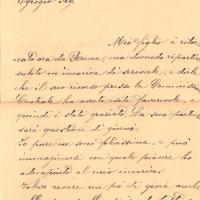 Egregio Sig.
Mio figlio è ritor-
nato ora da Roma, ma dovendo ripartire
subito m'incarica di scriverle, e dirle
che il suo ricorso presso la Commissione
Centrale ha avuto esito favorevole, e
quindi è stato graziato. La sua partenza
sarà questione di giorni.
Io pure ne sono felicissima, e può
immaginarsi con quale piacere ho
adempiuto al mio incarico.
essere un po' di gioia anche